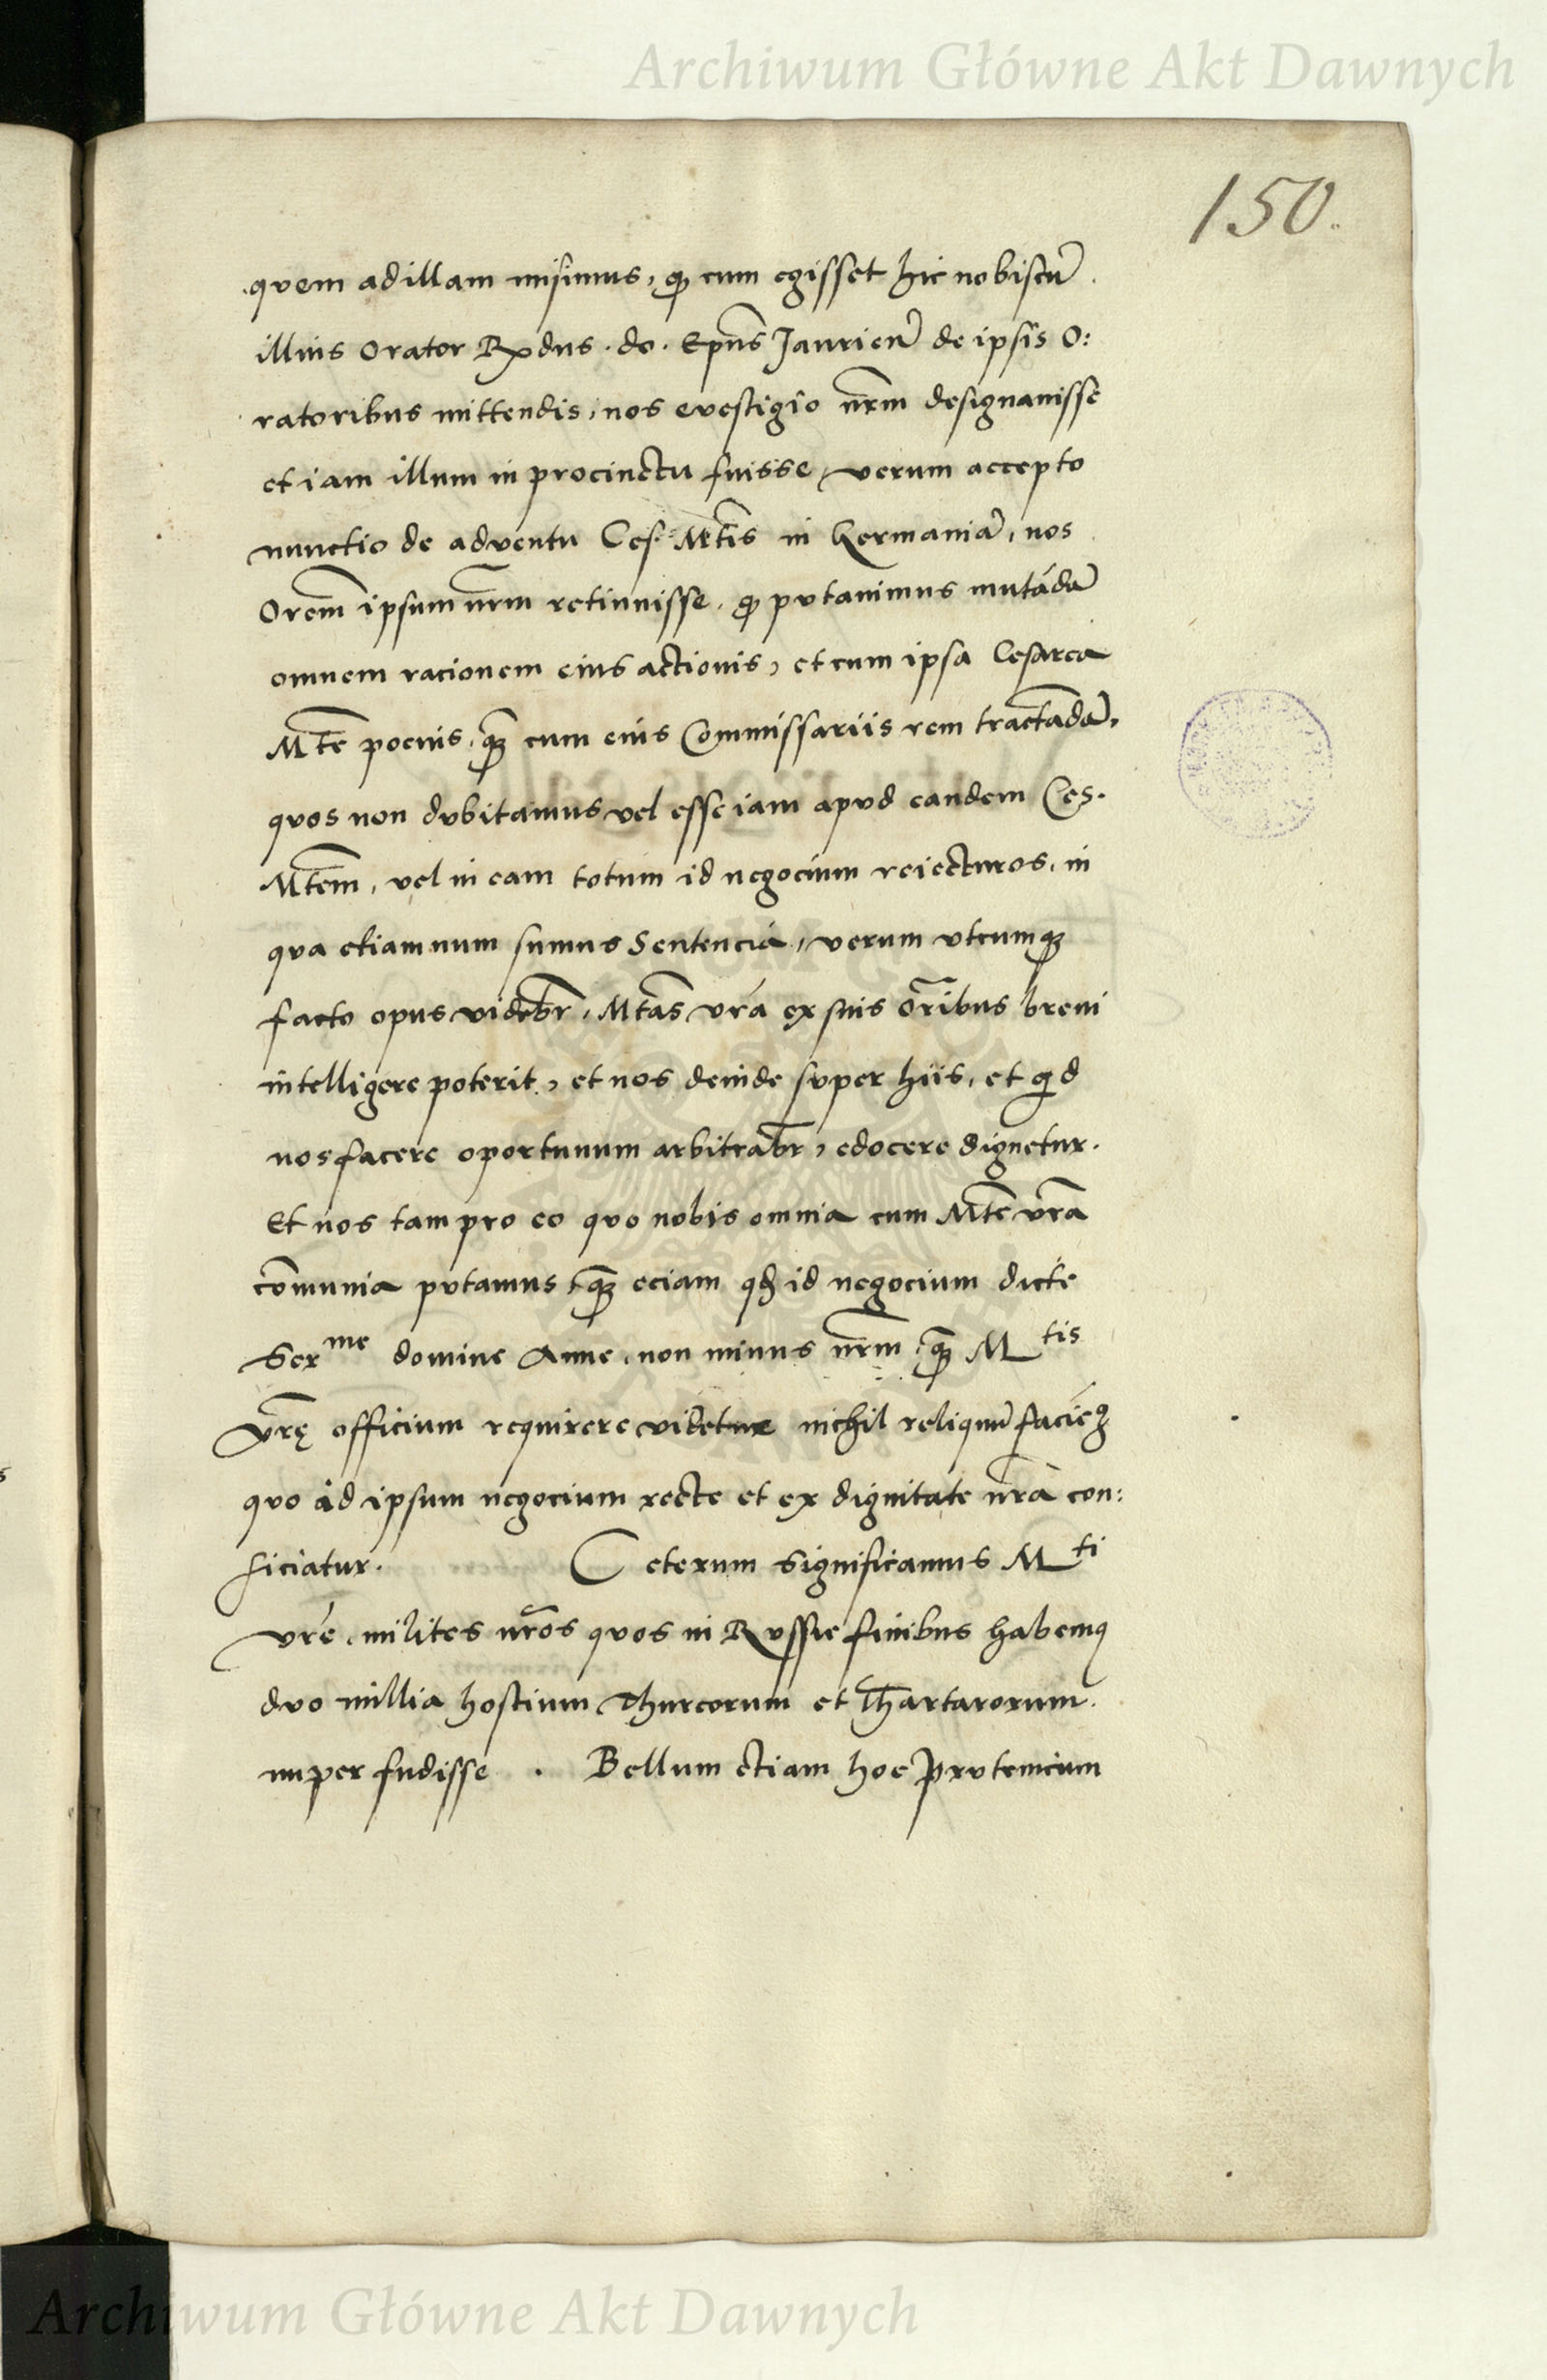 Archiwum Główne Akt Dawnych
150.
quem ad illam misimus, qđ cum egisset hic nobiscū
illius Orator Rx̄dus . do . Epūs Jaurień de ipsis O:
ratoribus mittendis, nos evestigio nr̄m designauisse
et iam illum in procinctu fuisse, verum accepto
nunctio de adventu Ces. Mtīs in Germaniā, nos
Orem̄ ipsum nr̄m retinuisse, qđ putauimus mutādā
omnem racionem eius actionis, et cum ipsa Cesarea
Mtē pocius, q̄ȝ cum eius Commissariis rem tractādā,
quos non dubitamus vel esse iam apud eandem Ces.
Mtēm, vel in eam totum id negocium reiecturos, in
qua etiamnum sumus Sentencia, verum utcumqȝ
facto opus videbr̄, Mtās vrā ex suis or̄ibus breui
intelligere poterit, et nos deinde super hiis, et qͥd
nos facere oportunum arbitrabr̄, edocere dignetur.
Et nos tam pro eo quo nobis omnia cum Mtē vrā
cōmunia putamus, q̄ȝ eciam qđ id negocium dicte
Serᵐᵉ domine Anne, non minus nr̄m, q̄ȝ Mᵗⁱˢ
vrę̄ officium requirere videtur nichil reliquū faciēȝ
quo id ipsum negocium recte et ex dignitate nrā con:
ficiatur. Ceterum significamus Mᵗⁱ
vrē, milites nrōs quos in Russie finibus habemꝯ
duo millia hostium Thurcorum et Thartarorum
nuper fudisse . Bellum etiam hoc Prutenicum
Archiwum Główne Akt Dawnych